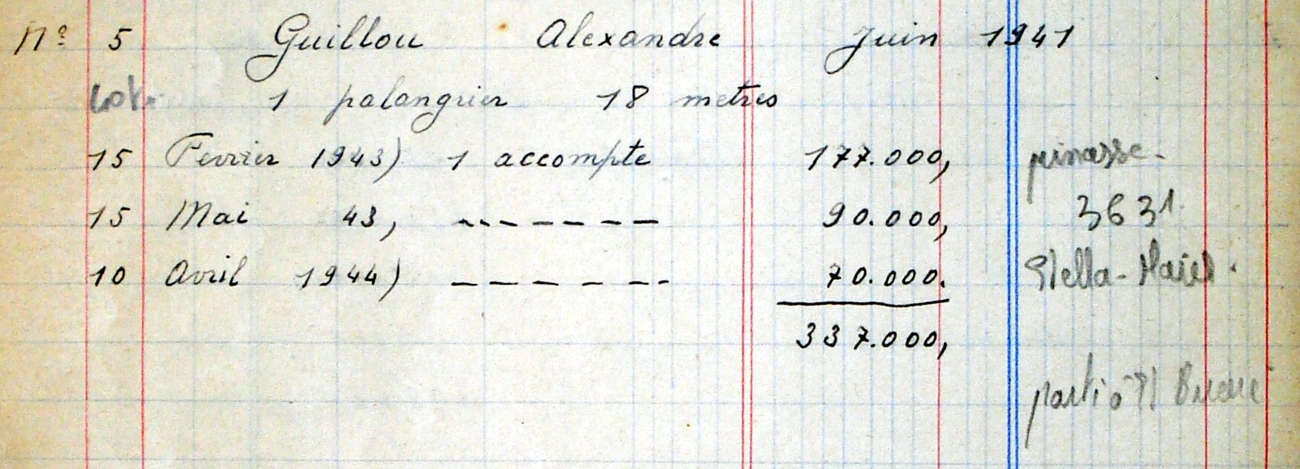 N° 5 Guillou Alexandre Juin 1941
1 palangrier 18 metres
15 Fevrier 1943) 1 accompte 177.000, pinasse.
15 Mai 43, ------ 90.000, 3631
10 Avril 1944) ------ 70.000. Stella-Maris.
337.000,
parti à